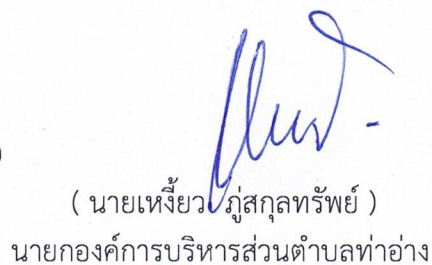 ( นายเหงี้ยว ภู่สกุลทรัพย์ )
นายกองค์การบริหารส่วนตำบลท่าอ่าง